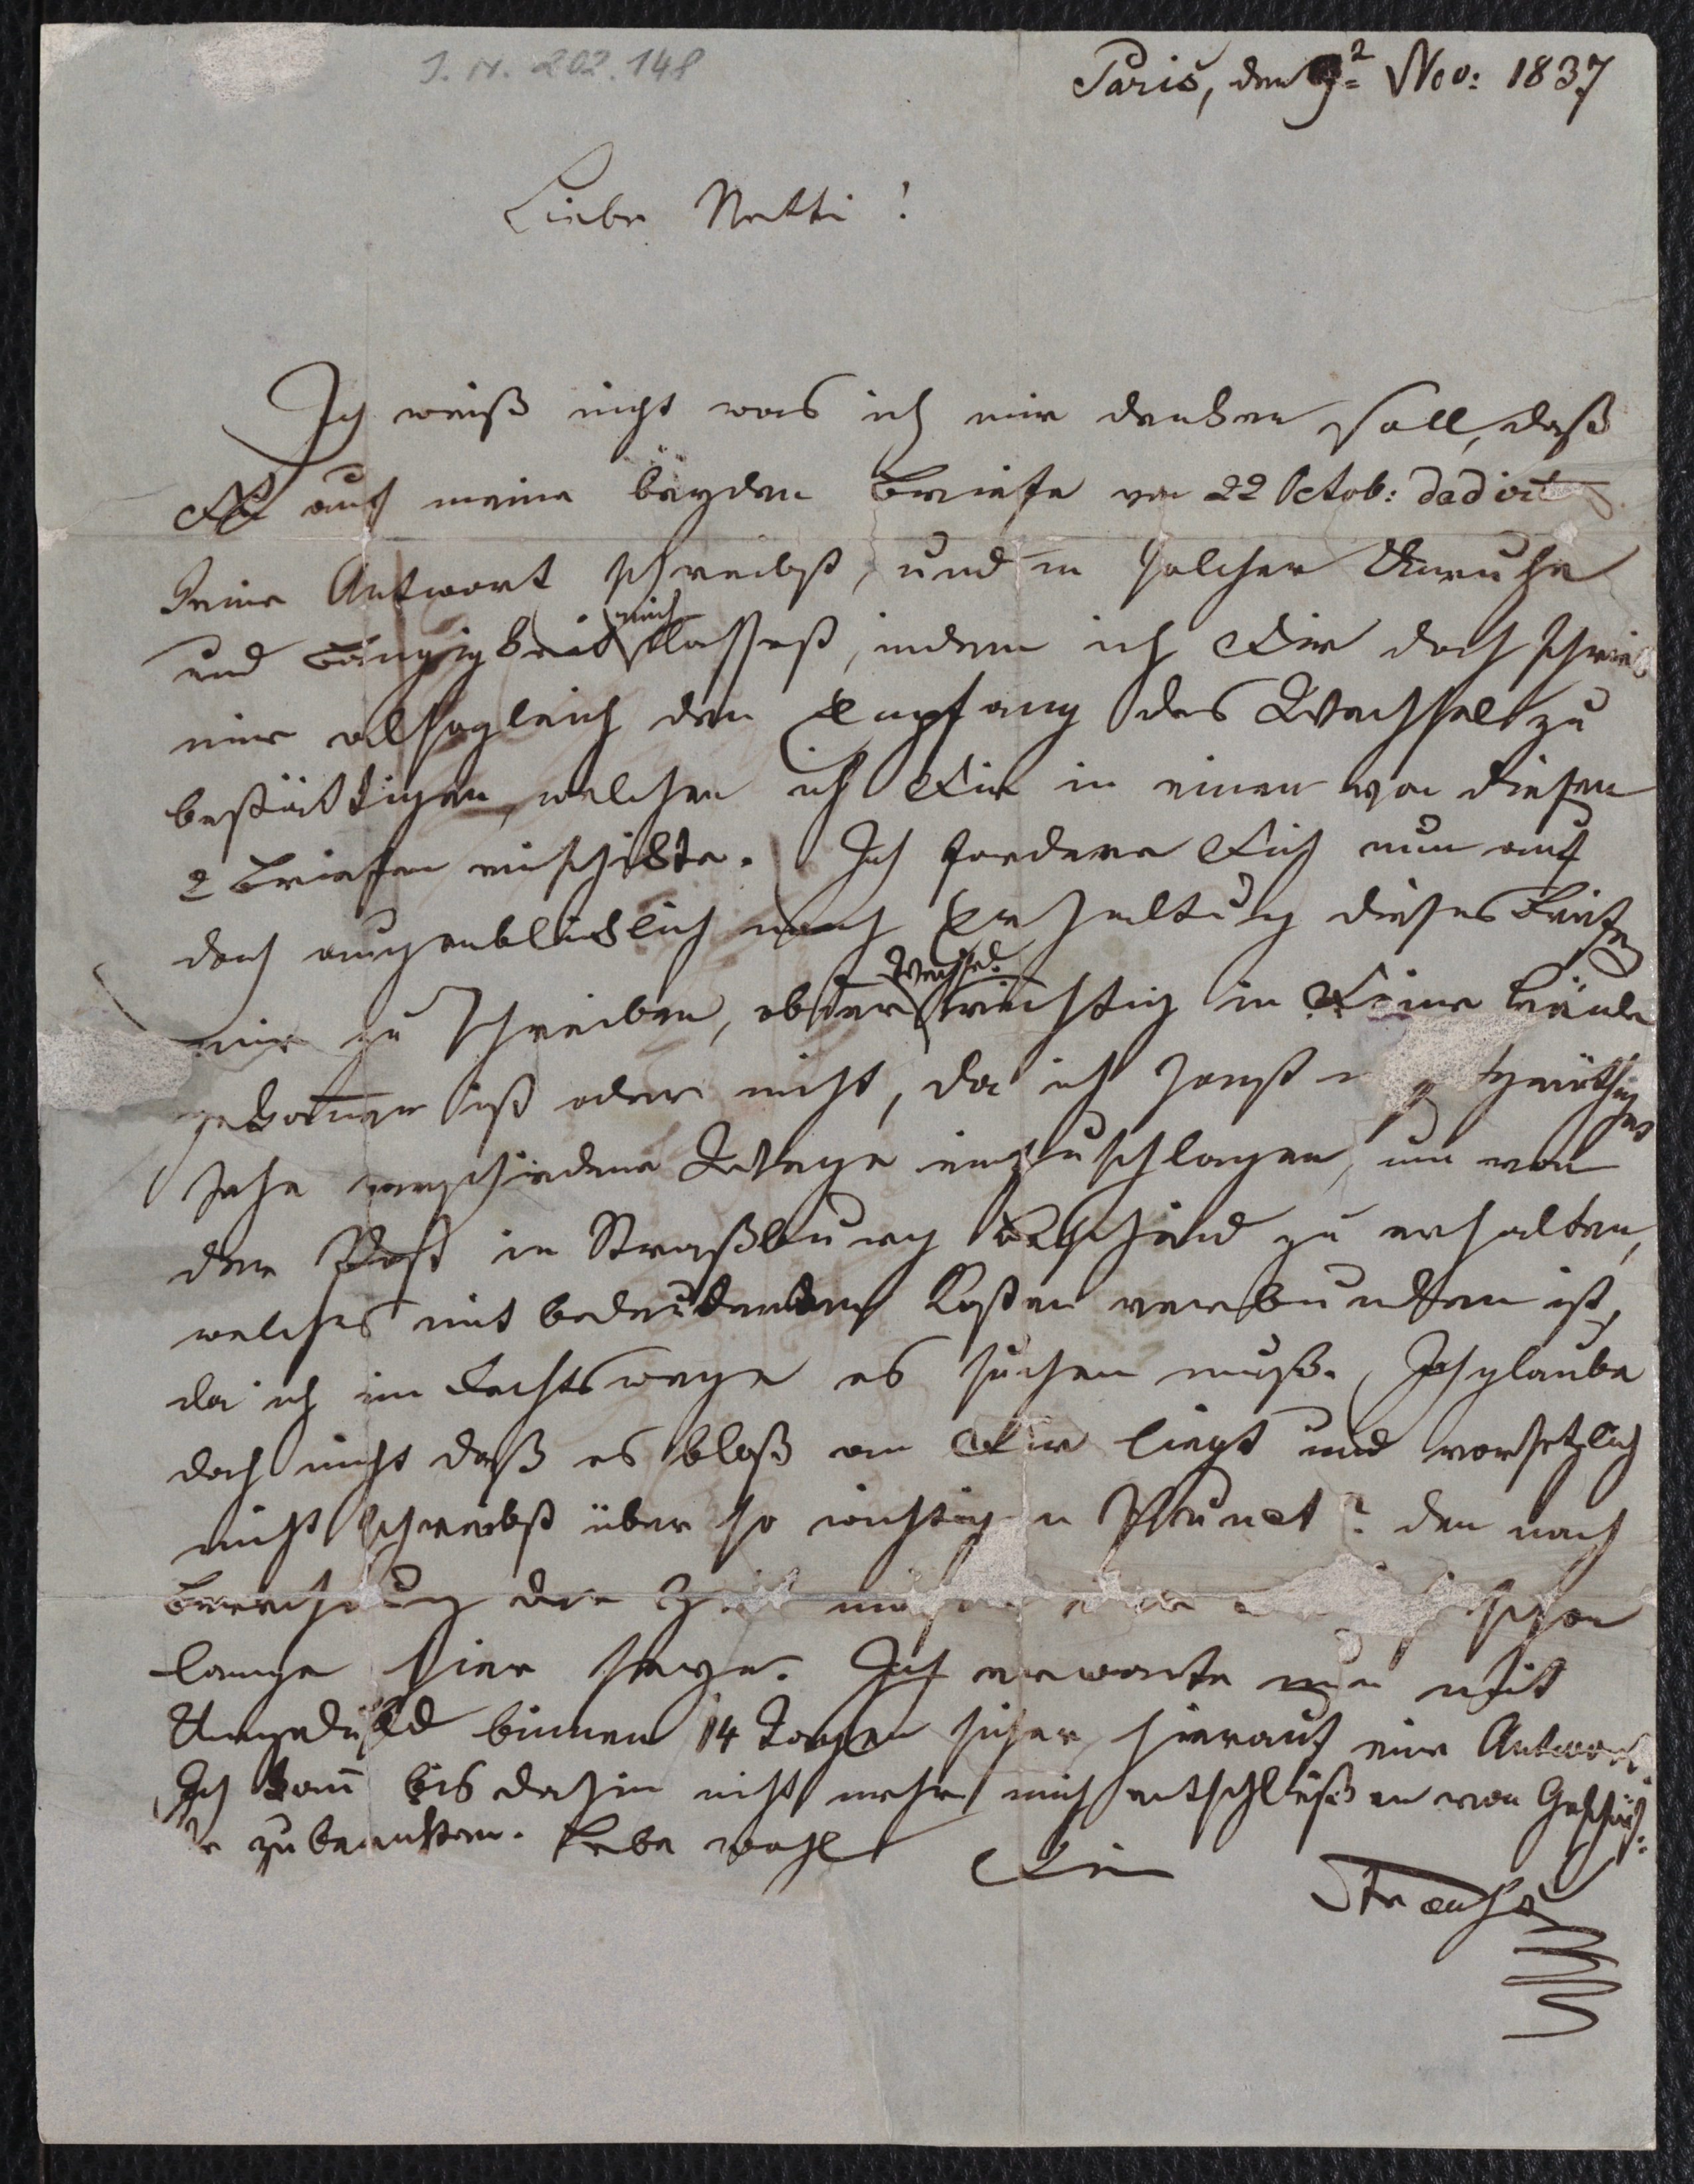 J. N. 202.148
Paris, den 9t Nov: 1837
Liebe Netti!
Ich weiß nicht was ich mir denken soll, daß
Du auf meine beyden Briefe von 22 Octob: dadirt
keine Antwort schreibst, und in solcher Unruhe
und Bängigkeit mich lassest, indem ich Dir doch schrieb
mir alsogleich den Empfang des Wechsels zu
bestättigen, welchen ich Dir in einen von diesen
2 Briefen einschikte. Ich fordere Dich nun auf
doch augenbliklich nach Erhaltung dieses Briefes
mir zu schreiben, ob der Wechsel richtig in Deine Hände
gekomen ist oder nicht, da ich sonst genöthiget
sehe verschiedene Wege einzuschlagen, um von
der Post in Straßburg Bescheid zu erhalten,
welches mit bedeutenden Kosten verbunden ist,
da ich im Rechtswege es suchen muß. Ich glaube
doch nicht daß es bloß an Dir liegt und vorsetzlich
nicht schreibst über so wichtigen Punct? den nach
Berechnung der Zeit schon
lange hier seyn. Ich erwarte nun mit
Ungeduld binnen 14 Tagen sicher hierauf eine Antwort.
Ich kann bis dahin nicht mehr mich entschlüßen von Geschäf-
te zu benken. Lebe wohl
Dein
Strauß